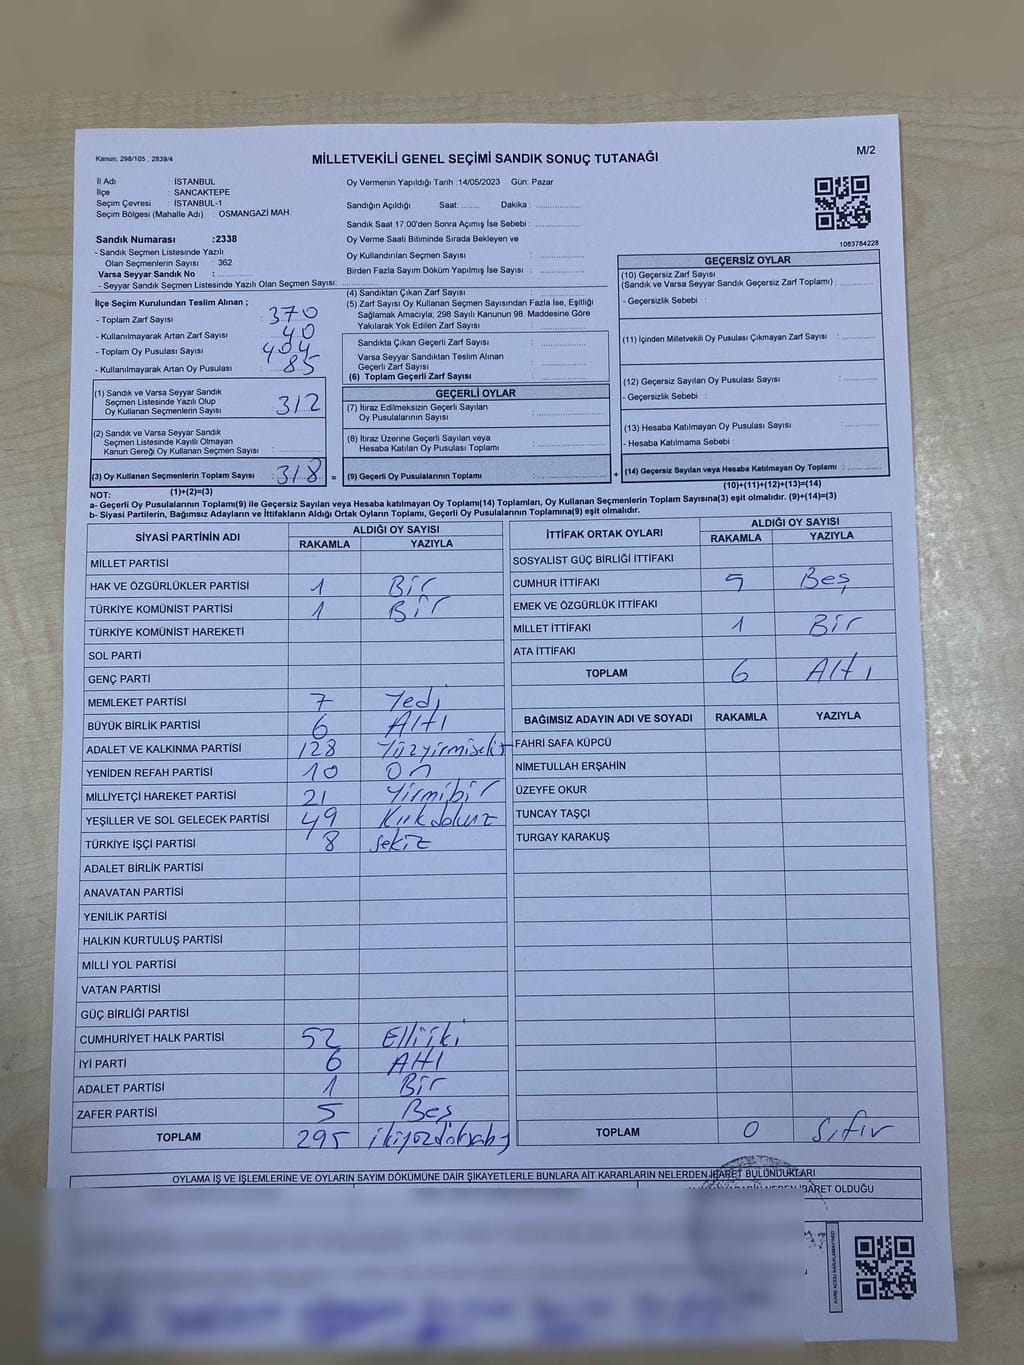 Kanun; 298/105 , 2839/4
MİLLETVEKİLİ GENEL SEÇİMİ SANDIK SONUÇ TUTANAĞI
M/2
İl Adı : İSTANBUL
İlçe : SANCAKTEPE
Seçim Çevresi : İSTANBUL-1
Seçim Bölgesi (Mahalle Adı) : OSMANGAZİ MAH.
Sandık Numarası :2338
- Sandık Seçmen Listesinde Yazılı
Olan Seçmenlerin Sayısı : 362
Varsa Seyyar Sandık No :
- Seyyar Sandık Seçmen Listesinde Yazılı Olan Seçmen Sayısı:
Oy Vermenin Yapıldığı Tarih :14/05/2023 Gün: Pazar
Sandığın Açıldığı Saat: Dakika :
Sandık Saat 17:00'den Sonra Açımış İse Sebebi :
Oy Verme Saati Bitiminde Sırada Bekleyen ve
Oy Kullandırılan Seçmen Sayısı :
Birden Fazla Sayım Döküm Yapılmış İse Sayısı :
1083784228
İlçe Seçim Kurulundan Teslim Alınan ;
- Toplam Zarf Sayısı : 370
- Kullanılmayarak Artan Zarf Sayısı : 40
- Toplam Oy Pusulası Sayısı : 404
- Kullanılmayarak Artan Oy Pusulası : 85
(1) Sandık ve Varsa Seyyar Sandık
Seçmen Listesinde Yazılı Olup
Oy Kullanan Seçmenlerin Sayısı : 312
(2) Sandık ve Varsa Seyyar Sandık
Seçmen Listesinde Kayıtlı Olmayan
Kanun Gereği Oy Kullanan Seçmen Sayısı :
(3) Oy Kullanan Seçmenlerin Toplam Sayısı : 318 =
(1)+(2)=(3)
(4) Sandıktan Çıkan Zarf Sayısı :
(5) Zarf Sayısı Oy Kullanan Seçmen Sayısından Fazla İse, Eşitliği
Sağlamak Amacıyla; 298 Sayılı Kanunun 98. Maddesine Göre
Yakılarak Yok Edilen Zarf Sayısı :
Sandıkta Çıkan Geçerli Zarf Sayısı :
Varsa Seyyar Sandıktan Teslim Alınan
Geçerli Zarf Sayısı :
(6) Toplam Geçerli Zarf Sayısı :
GEÇERLİ OYLAR
(7) İtiraz Edilmeksizin Geçerli Sayılan
Oy Pusulalarının Sayısı :
(8) İtiraz Üzerine Geçerli Sayılan veya
Hesaba Katılan Oy Pusulası Toplamı :
(9) Geçerli Oy Pusulalarının Toplamı : +
GEÇERSİZ OYLAR
(10) Geçersiz Zarf Sayısı
(Sandık ve Varsa Seyyar Sandık Geçersiz Zarf Toplamı) :
- Geçersizlik Sebebi :
(11) İçinden Milletvekili Oy Pusulası Çıkmayan Zarf Sayısı :
(12) Geçersiz Sayılan Oy Pusulası Sayısı :
- Geçersizlik Sebebi :
(13) Hesaba Katılmayan Oy Pusulası Sayısı :
- Hesaba Katılmama Sebebi :
(14) Geçersiz Sayılan veya Hesaba Katılmayan Oy Toplamı :
(10)+(11)+(12)+(13)=(14)
NOT:
a- Geçerli Oy Pusulalarının Toplamı(9) ile Geçersiz Sayılan veya Hesaba katılmayan Oy Toplamı(14) Toplamları, Oy Kullanan Seçmenlerin Toplam Sayısına(3) eşit olmalıdır. (9)+(14)=(3)
b- Siyasi Partilerin, Bağımsız Adayların ve İttifakların Aldığı Ortak Oyların Toplamı, Geçerli Oy Pusulalarının Toplamına(9) eşit olmalıdır.
SİYASİ PARTİNİN ADI ALDIĞI OY SAYISI
RAKAMLA YAZIYLA
MİLLET PARTİSİ
HAK VE ÖZGÜRLÜKLER PARTİSİ 1 Bir
TÜRKİYE KOMÜNİST PARTİSİ 1 Bir
TÜRKİYE KOMÜNİST HAREKETİ
SOL PARTİ
GENÇ PARTİ
MEMLEKET PARTİSİ 7 Yedi
BÜYÜK BİRLİK PARTİSİ 6 Altı
ADALET VE KALKINMA PARTİSİ 128
YENİDEN REFAH PARTİSİ 10 On
MİLLİYETÇİ HAREKET PARTİSİ 21 Yirmibir
YEŞİLLER VE SOL GELECEK PARTİSİ 49
TÜRKİYE İŞÇİ PARTİSİ 8 Sekiz
ADALET BİRLİK PARTİSİ
ANAVATAN PARTİSİ
YENİLİK PARTİSİ
HALKIN KURTULUŞ PARTİSİ
MİLLİ YOL PARTİSİ
VATAN PARTİSİ
GÜÇ BİRLİĞİ PARTİSİ
CUMHURİYET HALK PARTİSİ 52 Elliiki
İYİ PARTİ 6 Altı
ADALET PARTİSİ 1 Bir
ZAFER PARTİSİ 5 Beş
TOPLAM 295
İTTİFAK ORTAK OYLARI ALDIĞI OY SAYISI
RAKAMLA YAZIYLA
SOSYALİST GÜÇ BİRLİĞİ İTTİFAKI
CUMHUR İTTİFAKI 5 Beş
EMEK VE ÖZGÜRLÜK İTTİFAKI
MİLLET İTTİFAKI 1 Bir
ATA İTTİFAKI
TOPLAM 6 Altı
BAĞIMSIZ ADAYIN ADI VE SOYADI RAKAMLA YAZIYLA
FAHRİ SAFA KÜPCÜ
NİMETULLAH ERŞAHİN
ÜZEYFE OKUR
TUNCAY TAŞÇI
TURGAY KARAKUŞ
TOPLAM 0 Sıfır
OYLAMA İŞ VE İŞLEMLERİNE VE OYLARIN SAYIM DÖKÜMÜNE DAİR ŞİKAYETLERLE BUNLARA AİT KARARLARIN NELERDEN İBARET BULUNDUKLARI
İBARET OLDUĞU